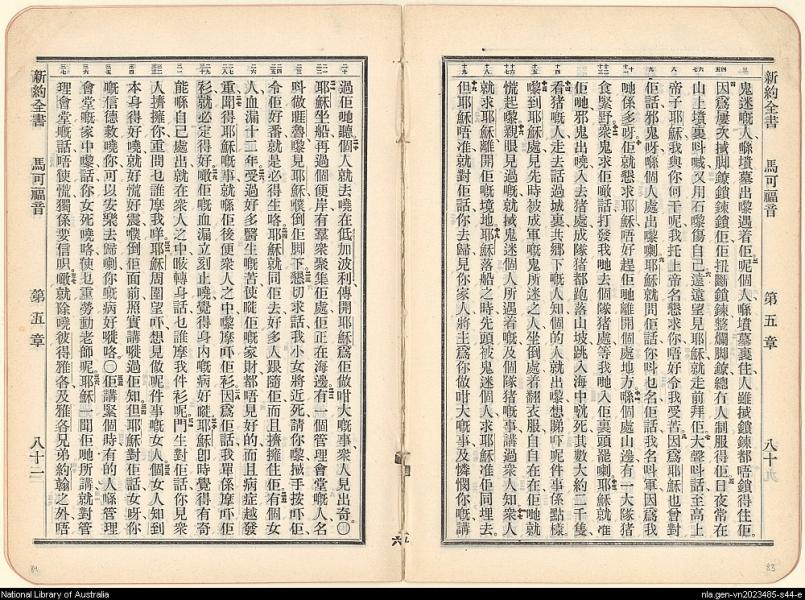 新約全書 馬可福音 第五章 八十九
鬼迷嘅人喺墳墓出嚟遇着佢呢個人喺墳墓裏住人雖搣鎖鍊都唔鎖得住佢
因爲屢次搣脚鐐鎖鍊鎖佢佢扭斷鎖鍊整爛脚鐐總冇人制服得佢日夜常在
山上墳裏呌喊又用石嚟傷自己遠遠望見耶穌就走前拜佢大聲呌話至高上
帝子耶穌我與你何干呢我托上帝名懇求你唔好令我受苦因爲耶穌也曾對
佢話邪鬼呀喺個人處出嚟喇耶穌就問佢話你呌乜名佢話我名呌軍因爲我
哋係多呀佢就懇求耶穌唔好趕佢哋離開個處地方喺個處山邊有一大隊猪
食緊野衆鬼求佢噉話打發我哋去個隊猪處等我哋入佢裏頭罷喇耶穌就准
佢哋邪鬼出曉入去猪處成隊猪都跑落山坡跳入海中就死其數大約二千隻
看猪嘅人走去話過城裏共鄉下嘅人知個的人就出嚟想睇吓呢件事係點樣
嚟到耶穌處見先時被成軍嘅鬼所迷之人坐倒處着翻衣服自自在在佢哋就
慌起嚟親眼見過嘅就搣鬼迷個人所遇着嘅及個隊猪嘅事講過衆人知衆人
就求耶穌離開佢嘅境地耶穌落船之時先頭被鬼迷個人求耶穌准佢同埋去
但耶穌唔准就對佢話你去歸見你家人將主爲你做咁大嘅事及憐憫你嘅講
過佢哋聽個人就去嘵在低加波利傳開耶穌爲佢做咁大嘅事衆人見出奇〇
耶穌坐船再過個便岸有羣衆聚集佢處佢正在海邊有一個管理會堂嘅人名
呌做睚魯嚟見耶穌噗倒佢脚下懇切求話我小女將近死請你嚟搣手按吓佢
令佢好番就是必得生咯耶穌就同佢去好多人跟隨佢而且擠擁住佢有個女
人血漏十二年受過好多醫生嘅苦使嘥佢嘅家財都唔見好的而且病症越發
重聞得耶穌嘅事就喺佢後便衆人之中嚟摩吓佢衫因爲佢話我單係摩吓佢
衫就必定得好嚹佢嘅血漏立刻止嘵覺得身內嘅病好嘥耶穌卽時覺得有奇
能喺自己處出就在衆人之中𨅝轉身話乜誰摩我件衫呢門生對佢話你見衆
人擠擁你重問乜誰摩我咩耶穌周圍望吓想見做呢件事嘅女人個女人知到
本身得好嘵就好慌好震噗倒佢面前照實講嘥過佢知但耶穌對佢話女呀你
嘅信德救嘵你可以安樂去歸喇你嘅病好嘥咯〇佢講緊個時有的人喺管理
會堂嘅家中嚟話你女死嘵咯使乜重勞動老師呢耶穌一聞佢哋所講就對管
理會堂嘅話唔使慌獨係要信呮噉就除嘵彼得雅各及雅各兄弟約翰之外唔
新約全書 馬可福音 第五章 八十二
84
83
National Library of Australia
nla.gen-vn2023485-s44-e